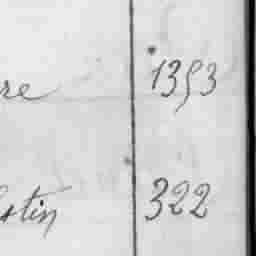 re 1393
stin 322